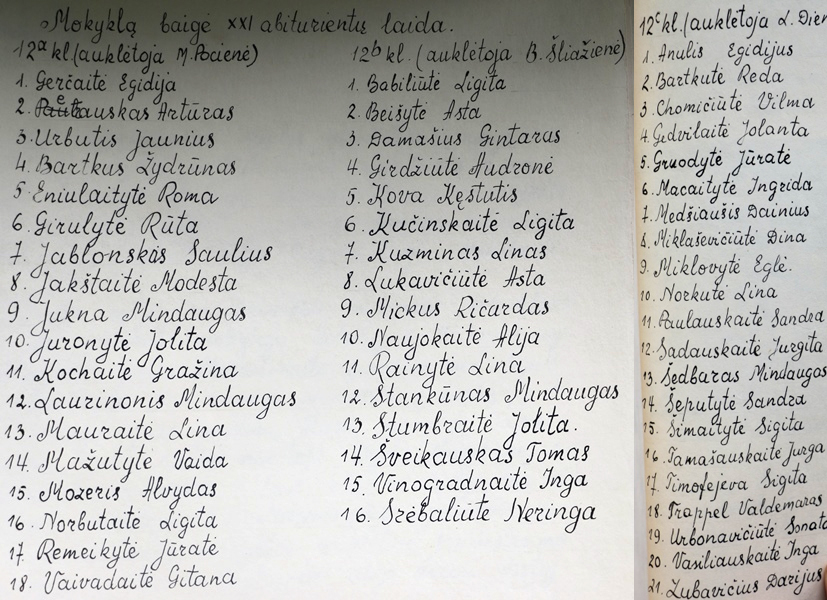 Mokyklą baigė XXI abiturientų laida.
12ᵃ kl. (auklėtoja M. Pocienė)
1. Gerčaitė Egidija
2. auskas Artūras
3. Urbutis Jaunius
4. Bartkus Žydrūnas
5. Eniulaitytė Roma
6. Girulytė Rūta
7. Jablonskas Saulius
8. Jakštaitė Modesta
9. Jukna Mindaugas
10. Juronytė Jolita
11. Kochaitė Gražina
12. Laurinonis Mindaugas
13. Mauraitė Lina
14. Mažutytė Vaida
15. Mozeris Alvydas
16. Norbutaitė Ligita
17. Remeikytė Jūratė
18. Vaivadaitė Gitana
12ᵇ kl. (auklėtoja B. Šliažienė)
1. Babiliūtė Ligita
2. Beišytė Asta
3. Damašius Gintaras
4. Girdžiūtė Audronė
5. Kova Kęstutis
6. Kučinskaitė Ligita
7. Kuzminas Linas
8. Lukavičiūtė Asta
9. Mickus Ričardas
10. Naujokaitė Alija
11. Rainytė Lina
12. Stankūnas Mindaugas
13. Stumbraitė Jolita.
14. Šveikauskas Tomas
15. Vinogradnaitė Inga
16. Srėbaliūtė Neringa
12ᶜ kl. (auklėtoja L. Dien
1. Anulis Egidijus
2. Bartkutė Reda
3. Chomičiūtė Vilma
4. Gedvilaitė Jolanta
5. Gruodytė Jūratė
6. Macaitytė Ingrida
7. Medšiaušis Dainius
8. Miklaševičiūtė Dina
9. Miklovytė Eglė.
10. Norkutė Lina
11. Paulauskaitė Sandra
12. Sadauskaitė Jurgita
13. Šedbaras Mindaugas
14. Šeputytė Sandra
15. Šimaitytė Sigita
16. Tamašauskaitė Jurga
17. Timofejeva Sigita
18. Trappel Valdemaras
19. Urbonavičiūtė Sonata
20. Vasiliauskaitė Inga
21. Lubavičius Darijus